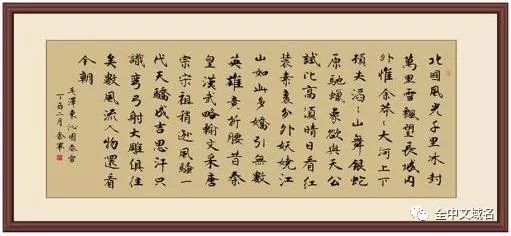 北國風光千里冰封
萬里雪飄望長城内
外惟余莽〻大河上下
頓失滔〻山舞銀蛇
原馳蠟象欲與天公
試比高須晴日看紅
裝素裹分外妖嬈江
山如此多嬌引無數
英雄竞折腰昔秦
皇漢武略輸文采唐
宗宋祖稍遜風騷一
代天驕成吉思汗只
識彎弓射大雕俱往
矣數風流人物還看
今朝
毛澤東沁園春雪
丁酉二月
全中文域名